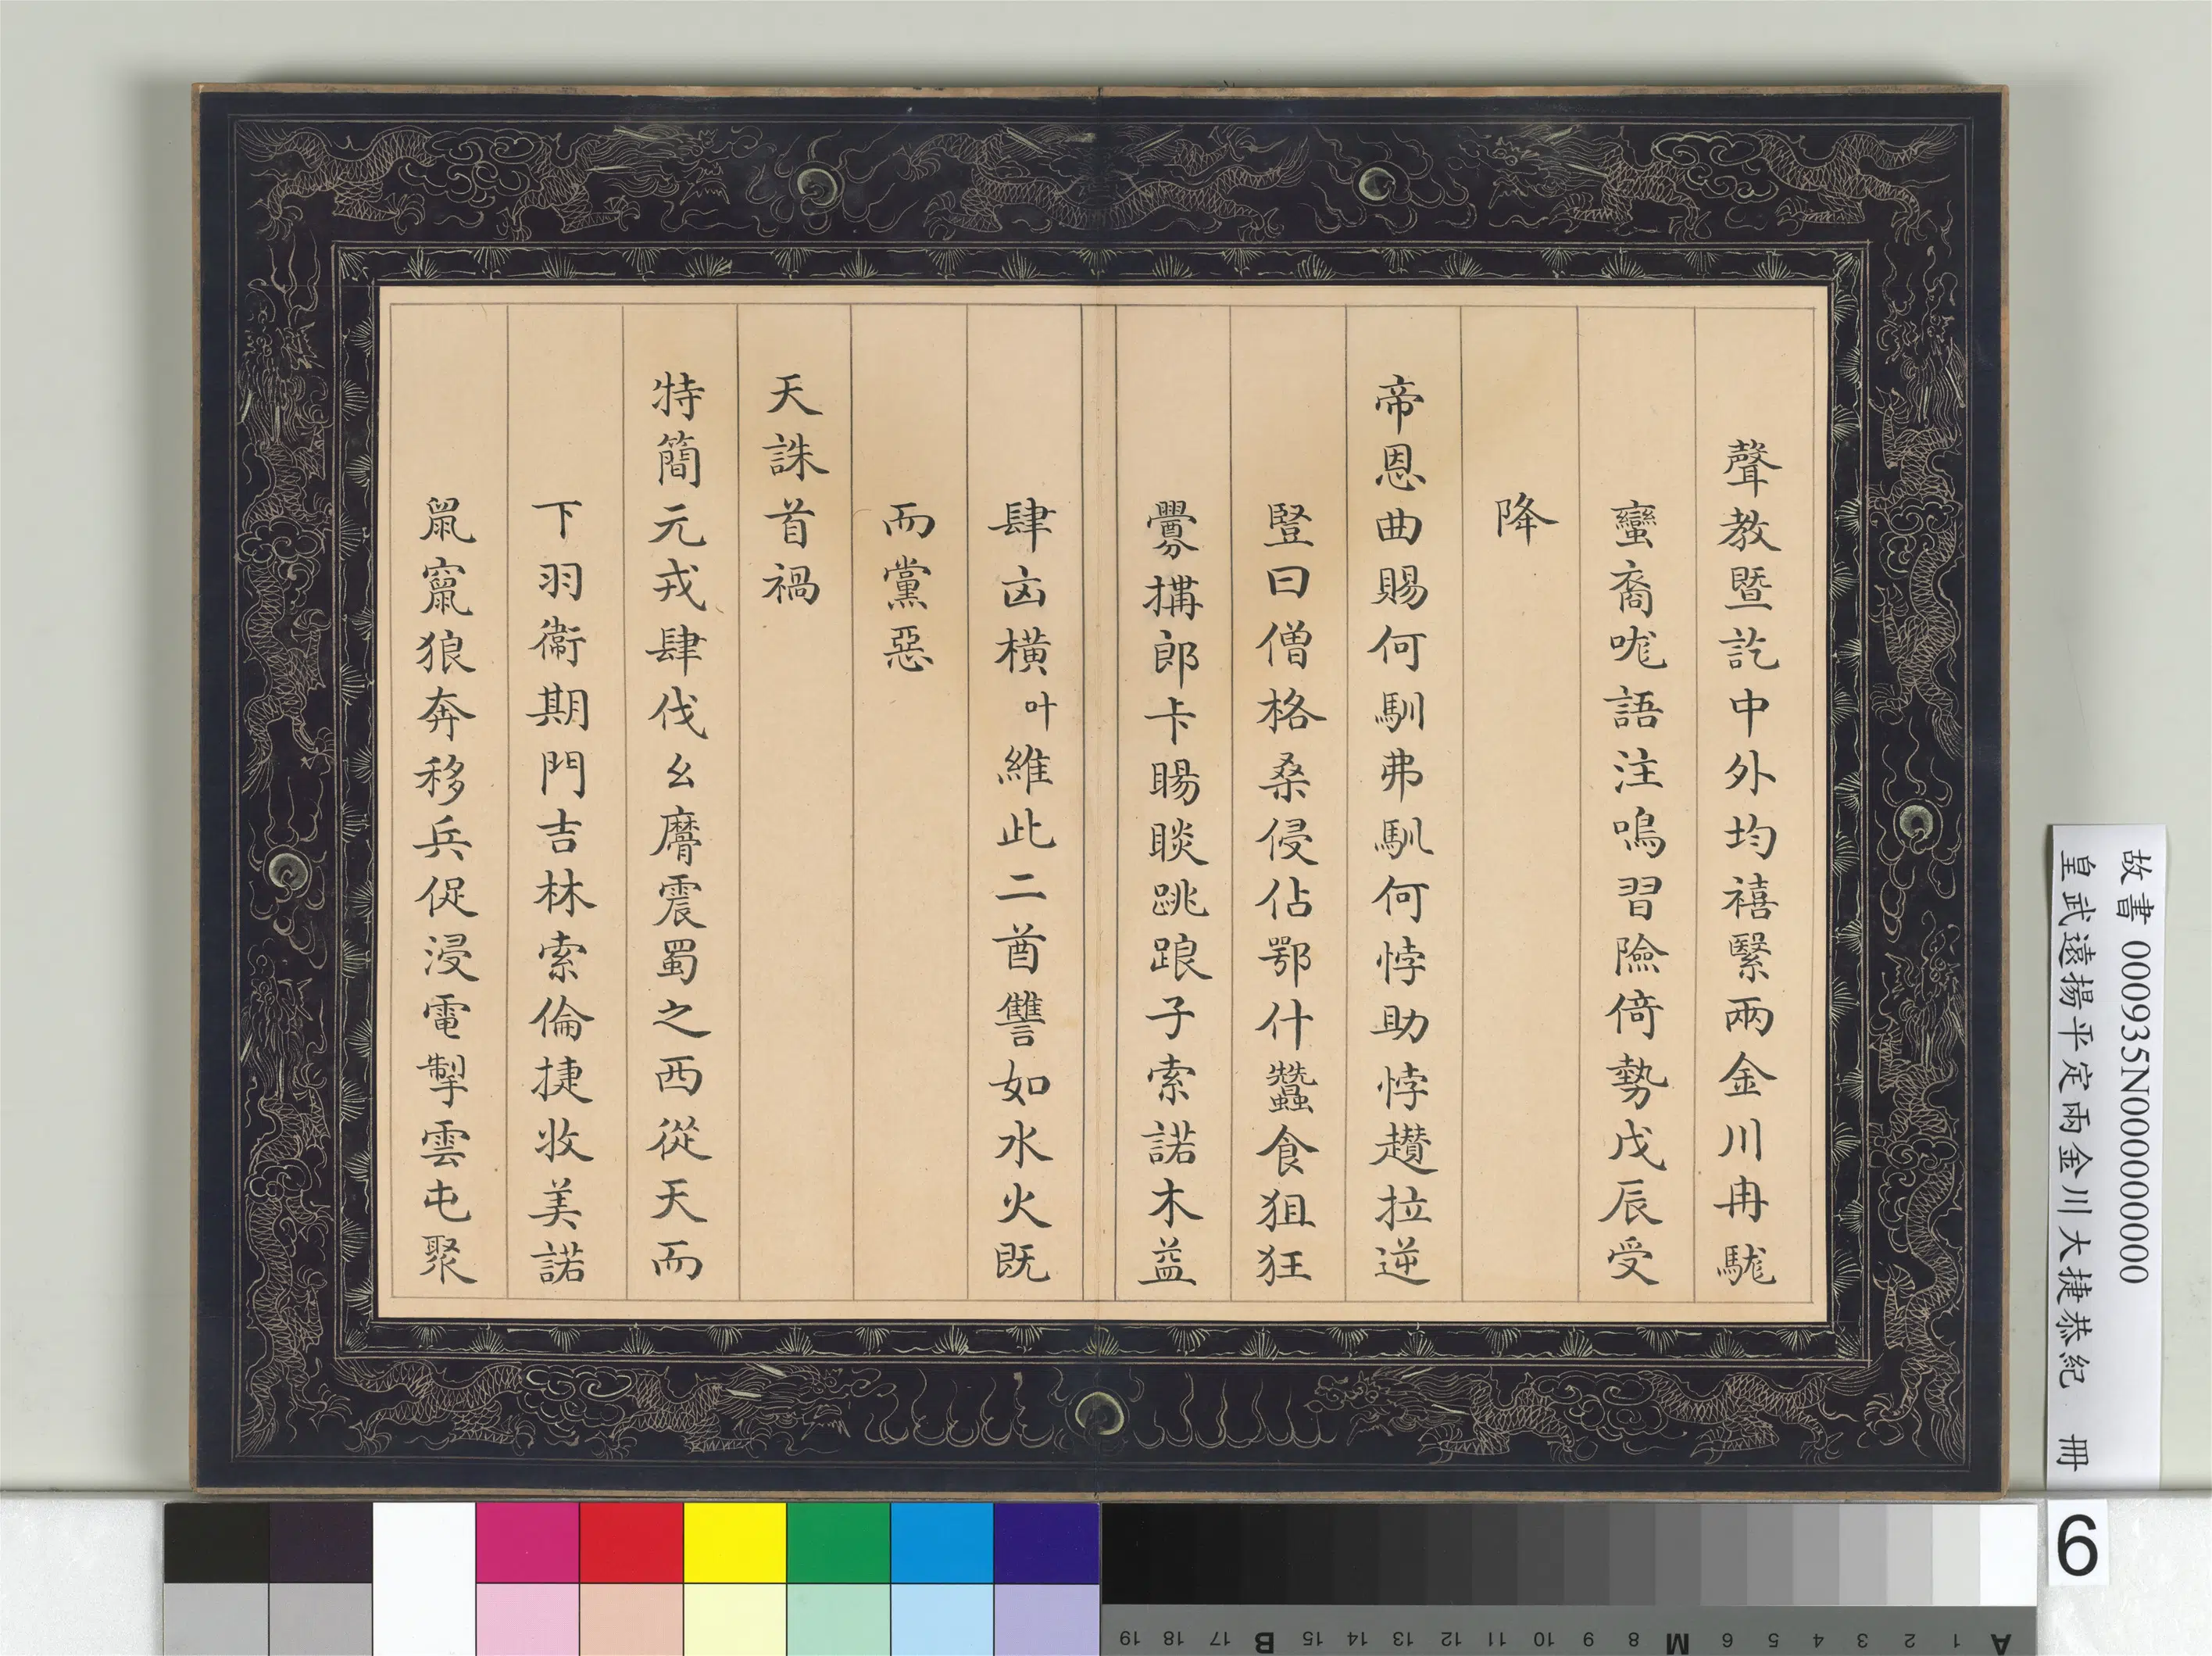 聲教暨訖中外均禧繄兩金川冉駹
蠻裔咙語注鳴習險倚勢戊辰受
降
帝恩曲賜何馴弗馴何悖助悖趲拉逆
豎曰僧格桑侵佔鄂什蠶食狙狂
釁搆郎卡睗睒跳踉子索諾木益
肆凶橫叶維此二酋讐如水火既
而黨惡
天誅首禍
特簡元戎肆伐幺䯢震蜀之西從天而
下羽衞期門吉林索倫捷收美諾
鼠竄狼奔移兵促浸電掣雲屯聚
故書 000935N000000000
皇武遠揚平定兩金川大捷恭紀 冊
6
A 1 2 3 4 5 6 M 8 9 10 11 12 13 14 15 B 17 18 19